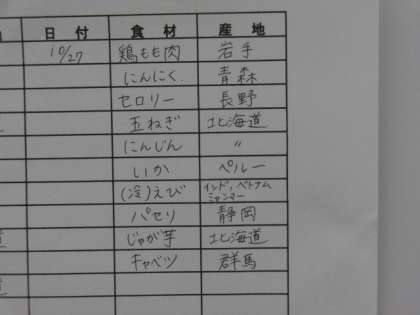 日付 食材 産地
10/27 鶏もも肉 岩手
にんにく 青森
セロリー 長野
玉ねぎ 北海道
にんじん 〃
いか ペルー
(冷)えび インド,ベトナム
ミャンマー
パセリ 静岡
じゃが芋 北海道
キャベツ 群馬